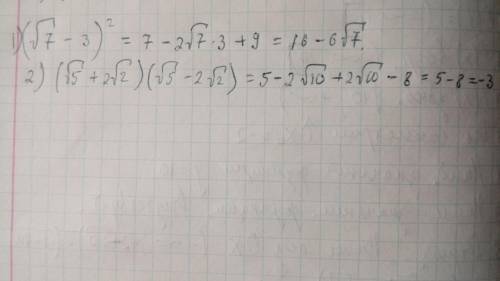 1) (√7 - 3)² = 7 - 2√7·3 + 9 = 16 - 6√7.
2) (√5 + 2√2)(√5 - 2√2) = 5 - 2√10 + 2√10 - 8 = 5 - 8 = -3